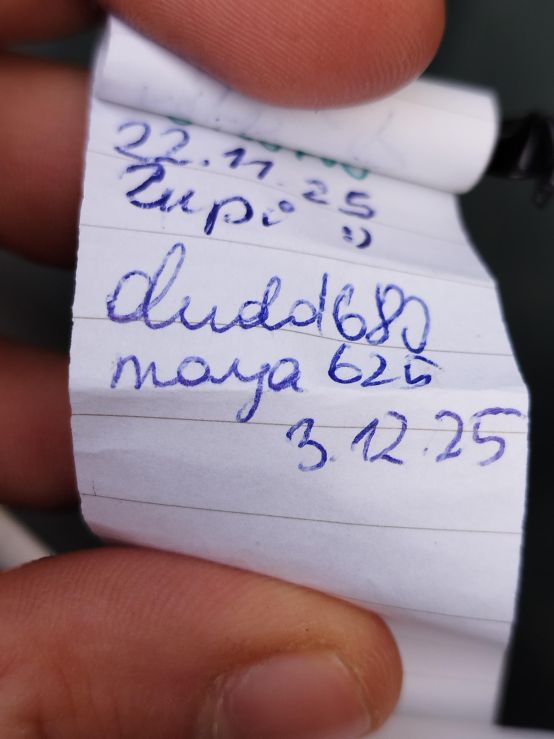 22.11.25
Zupi :)
dudd1689
maya 625
3.12.25